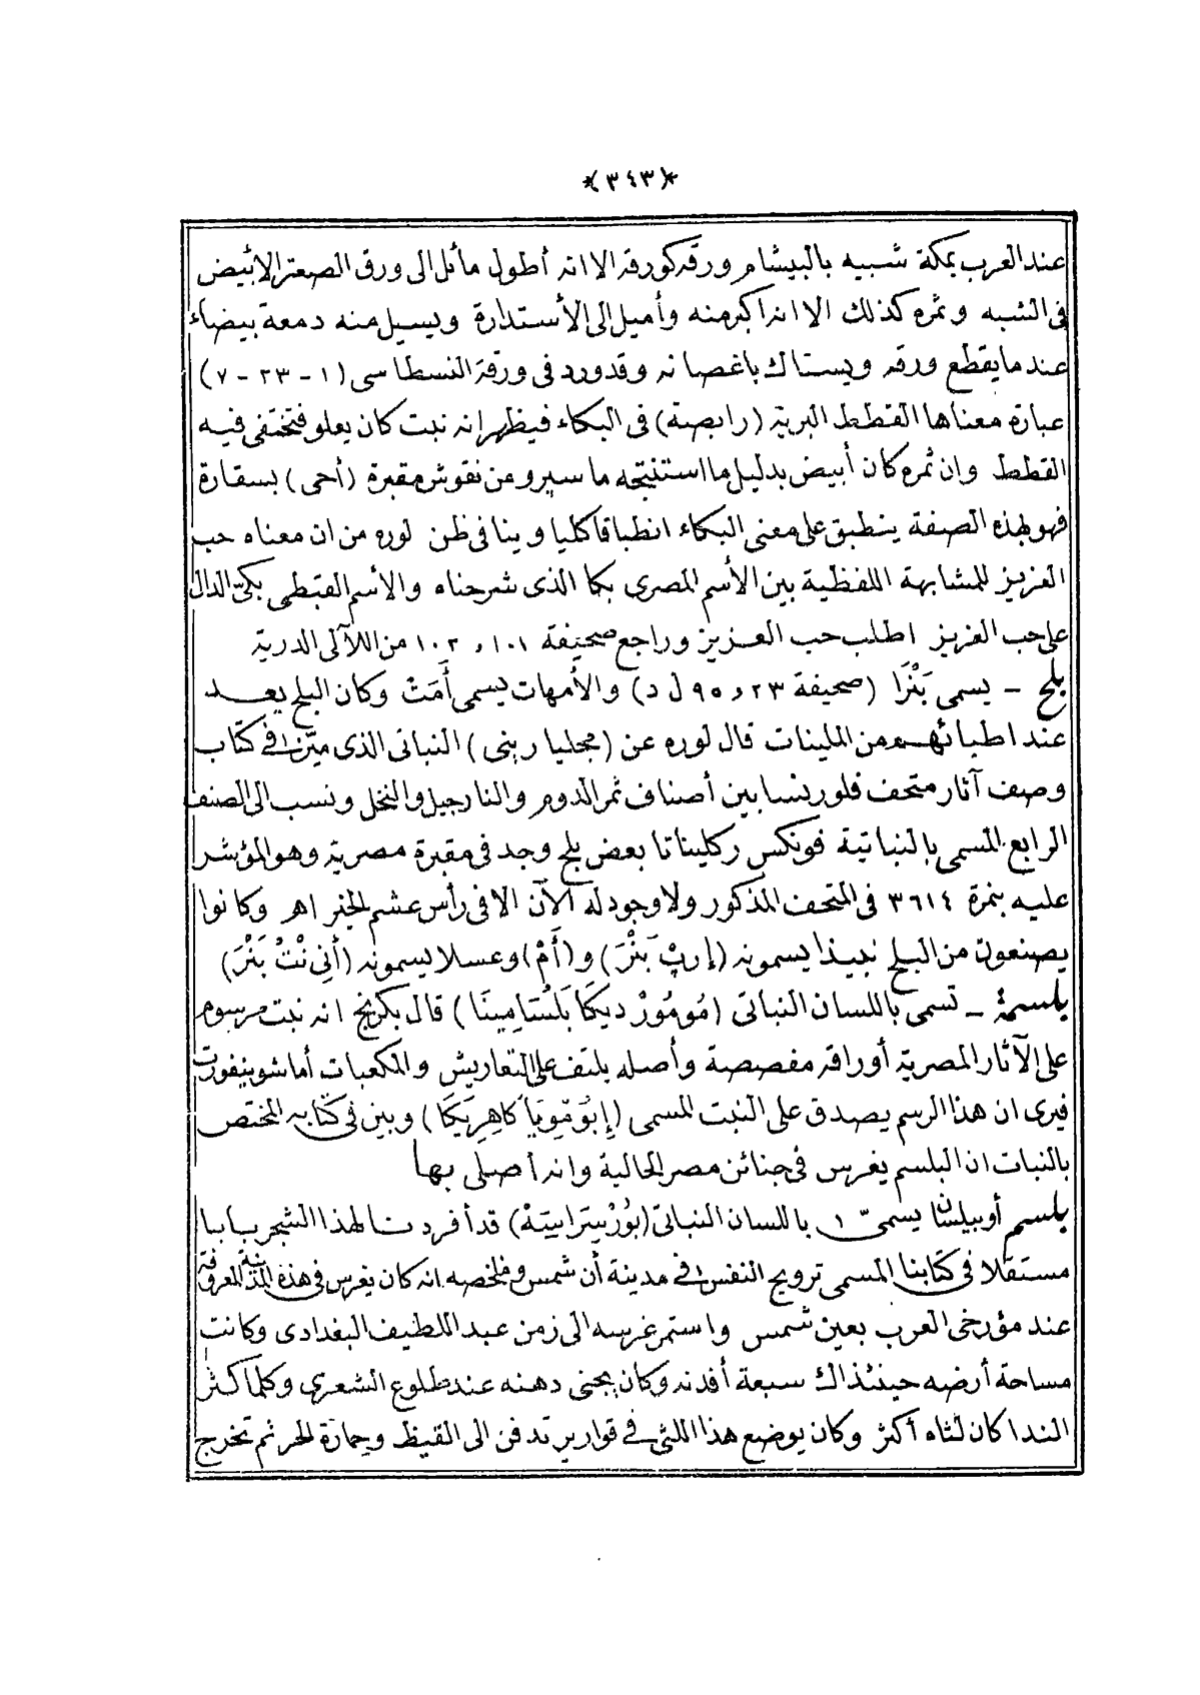 *(٣٤٣)*
عند العرب بمكة شبيه بالبيشام ورقه كورقه الا انه أطول مائل الى ورق الصعتر الابيض
فى الشبه وثمره كذلك الا انه اكبر منه وأميل الى الأستدارة ويسيل منه دمعة بيضاء
عند ما يقطع ورقه ويستاك باغصانه وقد ورد فى ورقة النسطاسى (١ - ٢٣ - ٧)
عبارة معناها القطط البرية (رابصة) فى البكاء فيظهر انه نبت كان يعلو فتختفى فيه
القطط وان ثمره كان أبيض بدليل ما استنتجه ماسيرو من نقوش مقبرة (أحى) بسقارة
فهو لهذه الصفة ينطبق على معنى البكاء انطباقا كليا وينافى ظن لوره من ان معناه حب
العزيز للمشابهة اللفظية بين الأسم المصرى بكا الذى شرحناه والأسم القبطى بكى الدال
على حب العزيز اطلب حب العزيز وراجع صحيفة ١٠١ و ١٠٢ من اللآلى الدرية
بلح - يسمى بَنْرَا (صحيفة ٢٣ و ٩٥ ل د) والأمهات يسمى أَمَتْ وكان البلح يعد
عند اطبائهم من الملينات قال لوره عن (مجليارينى) النباتى الذى ميّز فى كتاب
وصف آثار متحف فلورنسا بين أصناف ثمر الدوم والنارجيل والنخل ونسب الى الصنف
الرابع المسمى بالنباتية فونكس ركليناتا بعض بلح وجد فى مقبرة مصرية وهو المؤشر
عليه بنمرة ٣٦١٤ فى المتحف المذكور ولا وجود له الآن الا فى رأس عشم الخير اهر وكانوا
يصنعون من البلح نبيذا يسمونه (إرپْ بَنْرَ) و(أَمْ) وعسلا يسمونه (أَنِى نْتْ بَنْرَ)
بلسمة - تسمى باللسان النباتى (مُومُورْدِيكَا بَلْسَامِينَا) قال بكرنج انه نبت مرسوم
على الآثار المصرية أوراقه مفصصة وأصله يلتف على التعاريش والمكعبات أما شوينفورت
فيرى ان هذا الرسم يصدق على النبت المسمى (إِبُومِويَا كَاهِرِيكَا) وبين فى كتابه المختص
بالنبات ان البلسم يغرس فى جنائن مصر الحالية وانه أصلى بها
بلسم أو بيلسان يسمى باللسان النباتى (بُورْسِرَاسِيَهْ) قد أفردنا لهذا الشجر بابا
مستقلا فى كتابنا المسمى ترويح النفس فى مدينة أن شمس وملخصه انه كان يغرس فى هذه المدينة المعروفة
عند مؤرخى العرب بعين شمس واستمر غرسه الى زمن عبد اللطيف البغدادى وكانت
مساحة أرضه حينئذاك سبعة أفدنه وكان يجنى دهنه عند طلوع الشعرى وكلما كثر
الندا كان لثاه أكثر وكان يوضع هذا اللثى فى قوارير تدفن الى القيظ وحمارة الحر ثم تخرج